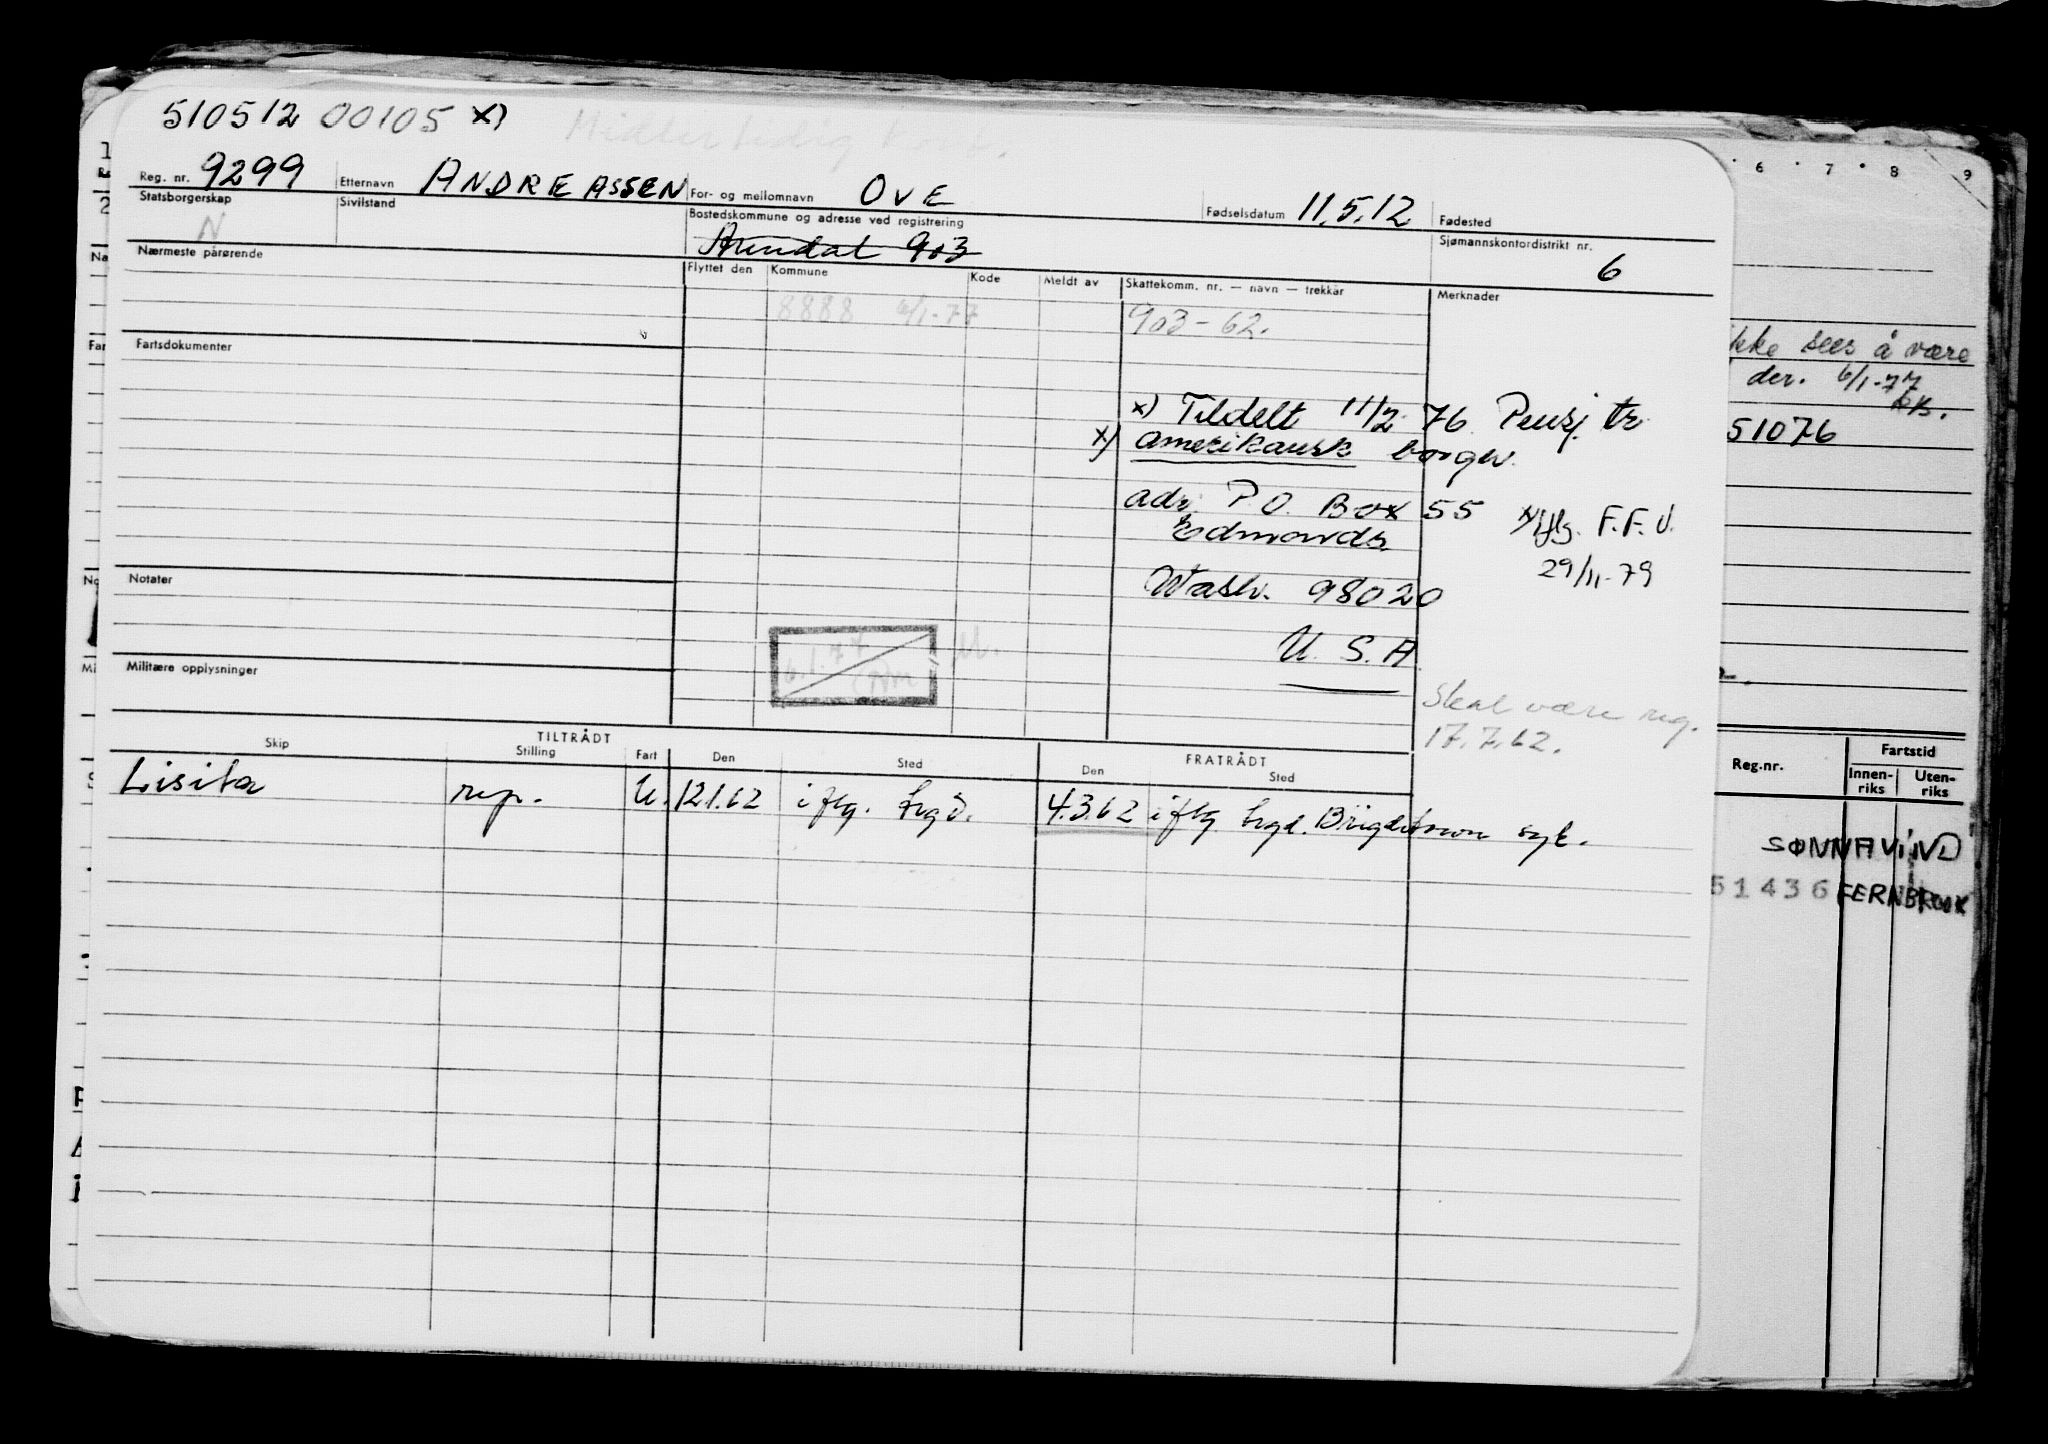 510512 00105 x)
Midlertidig kort.
Reg. nr. 9299 Etternavn ANDREASSEN For- og mellomnavn OVE Fødselsdatum 11.5.12 Fødested
Statsborgerskap N Sivilstand Bostedskommune og adresse ved registrering Arendal 903 Sjømannskontordistrikt nr. 6
Nærmeste pårørende Flyttet den Kommune Kode Meldt av Skattekomm. nr. — navn — trekkår Merknader
8888 6/1-77 903-62.
Fartsdokumenter
x) Tildelt 11/2 76 Pensj. tr
x) amerikansk borger.
adr. P.O. Box 55 x) iflg. F.F.V.
Edmonds. 29/11-79
Notater
Wash. 98020
U. S. A.
6.1.77
Militære opplysninger
Skal være reg.
17.7.62.
TILTRÅDT FRATRÅDT
Skip Stilling Fart Den Sted Den Sted
Lisita rep. U. 12.1.62 iflg. trgd. 4.3.62 iflg trgd. Brigdetown syk.
6 7 8 9
ikke sees å være
der. 6/1-77
51076
Reg.nr. Fartstid
Innen-riks Uten-riks
SØNNAVIND
51436 FERNBROOK